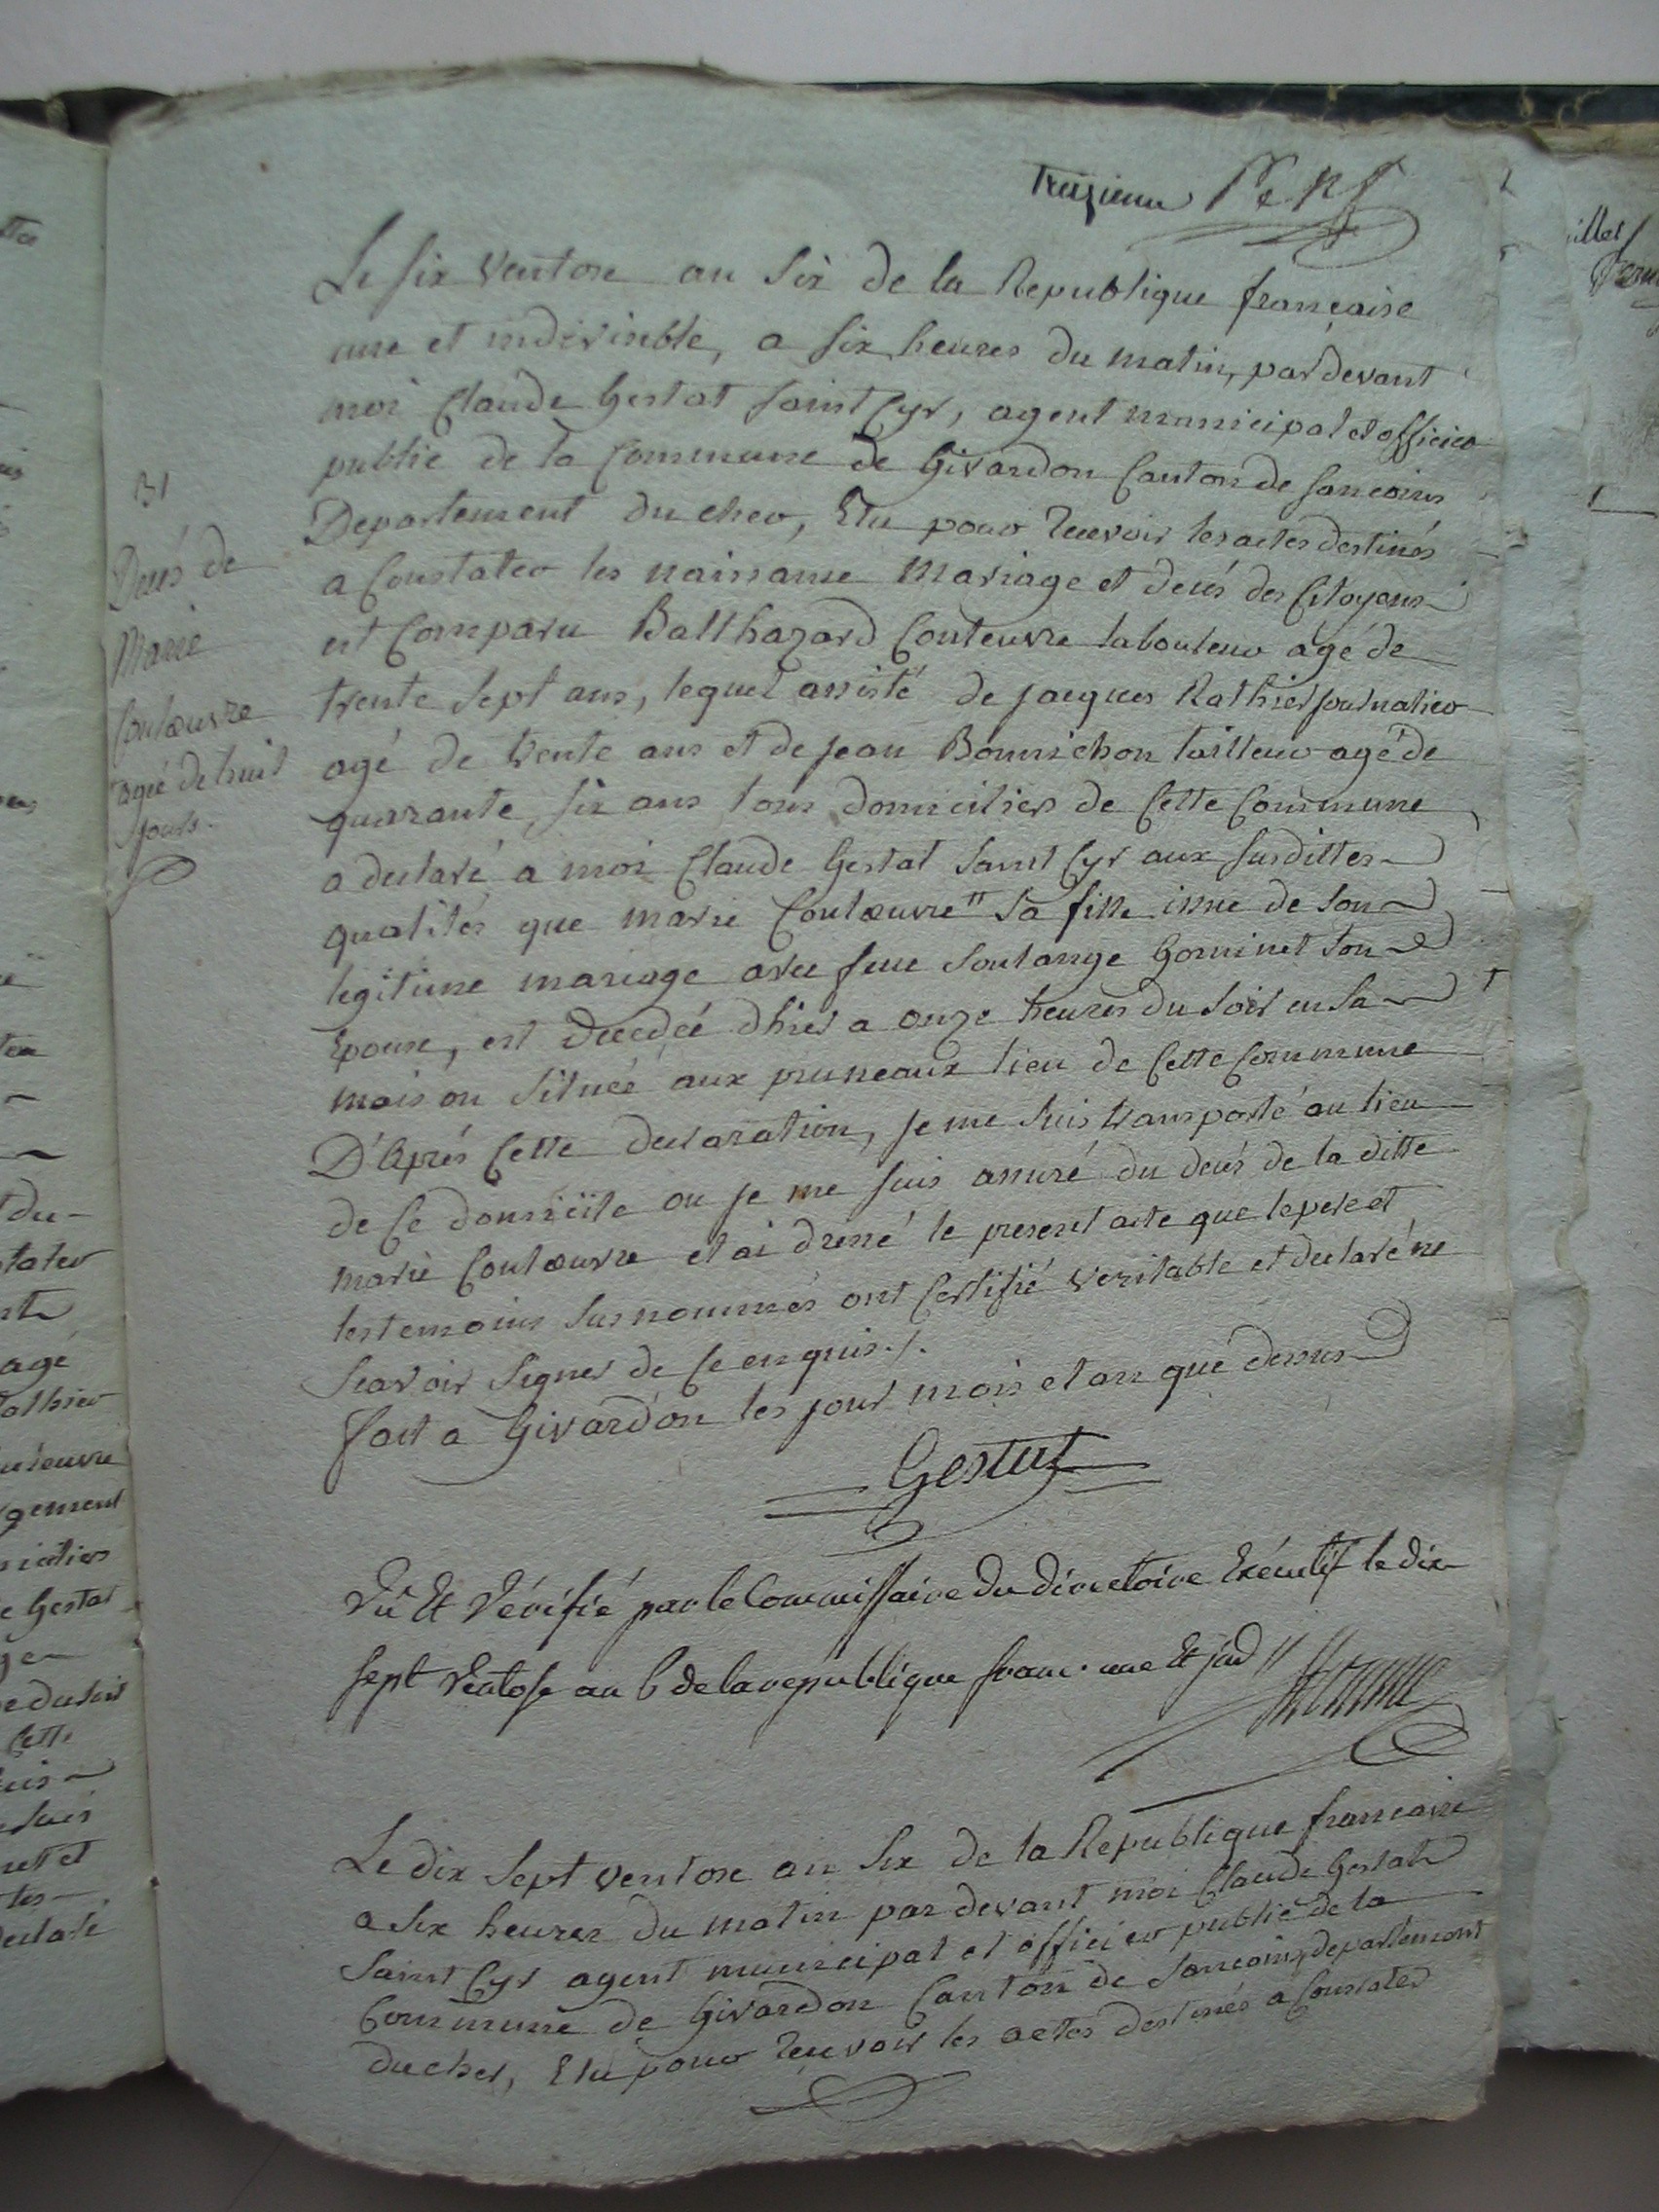 Treizieme
Le six Ventose an Six de la Republique française
une et indivisible, a six heures du matin, pardevant
moi Claude Gestat Saint Cyr, agent municipal et officier
public de la Commune de Givardon Canton de Sancoins
Departement du cher, Elu pour recevoir les actes destinés
a Constater les naissance Mariage et decés des Citoyens
est Comparu Balthazard Couteuvre laboureur agé de
trente Sept ans, lequel assisté de jacques Rathier journalier
agé de trente ans et de jean Bonnichon tailleur agé de
quarante six ans tous domiciliers de Cette Commune
a declaré a moi Claude Gestat Saint Cyr aux susdittes
qualités que marie Coulœuvre " Sa fille issue de Son
legitime mariage avec feue Soulange Gominet Son
Epouse, est Decedeé d'hier a onze heures du Soir en Sa
maison Situeé aux pruneaux lieu de Cette Commune
D'Aprés Cette declaration, je me suis transporté au lieu
de Ce domicile ou je me suis assuré du decés de la ditte
marie Coulœuvre et ai dressé le present acte que le pere et
les temoins Susnommés ont Certifié veritable et declaré ne
Scavoir Signer de Ce enquis ./.
fait a Givardon les jour mois et an que dessus
Gestat
31
Decés de
Marie
Coulœuvre
ageé de huit
jours.
Vû Et Vérifié par le Commissaire du directoire Exécutif le dix
sept Ventose an 6 de la republique franc. une Et ind "
Le dix Sept ventose an Six de la Republique francaise
a Six heures du matin par devant moi Claude Gestat
Saint Cyr agent municipal et officier public de la
Commune de Givardon Canton de Sancoins, departement
du cher, Elu pour recevoir les actes destinés a Constater